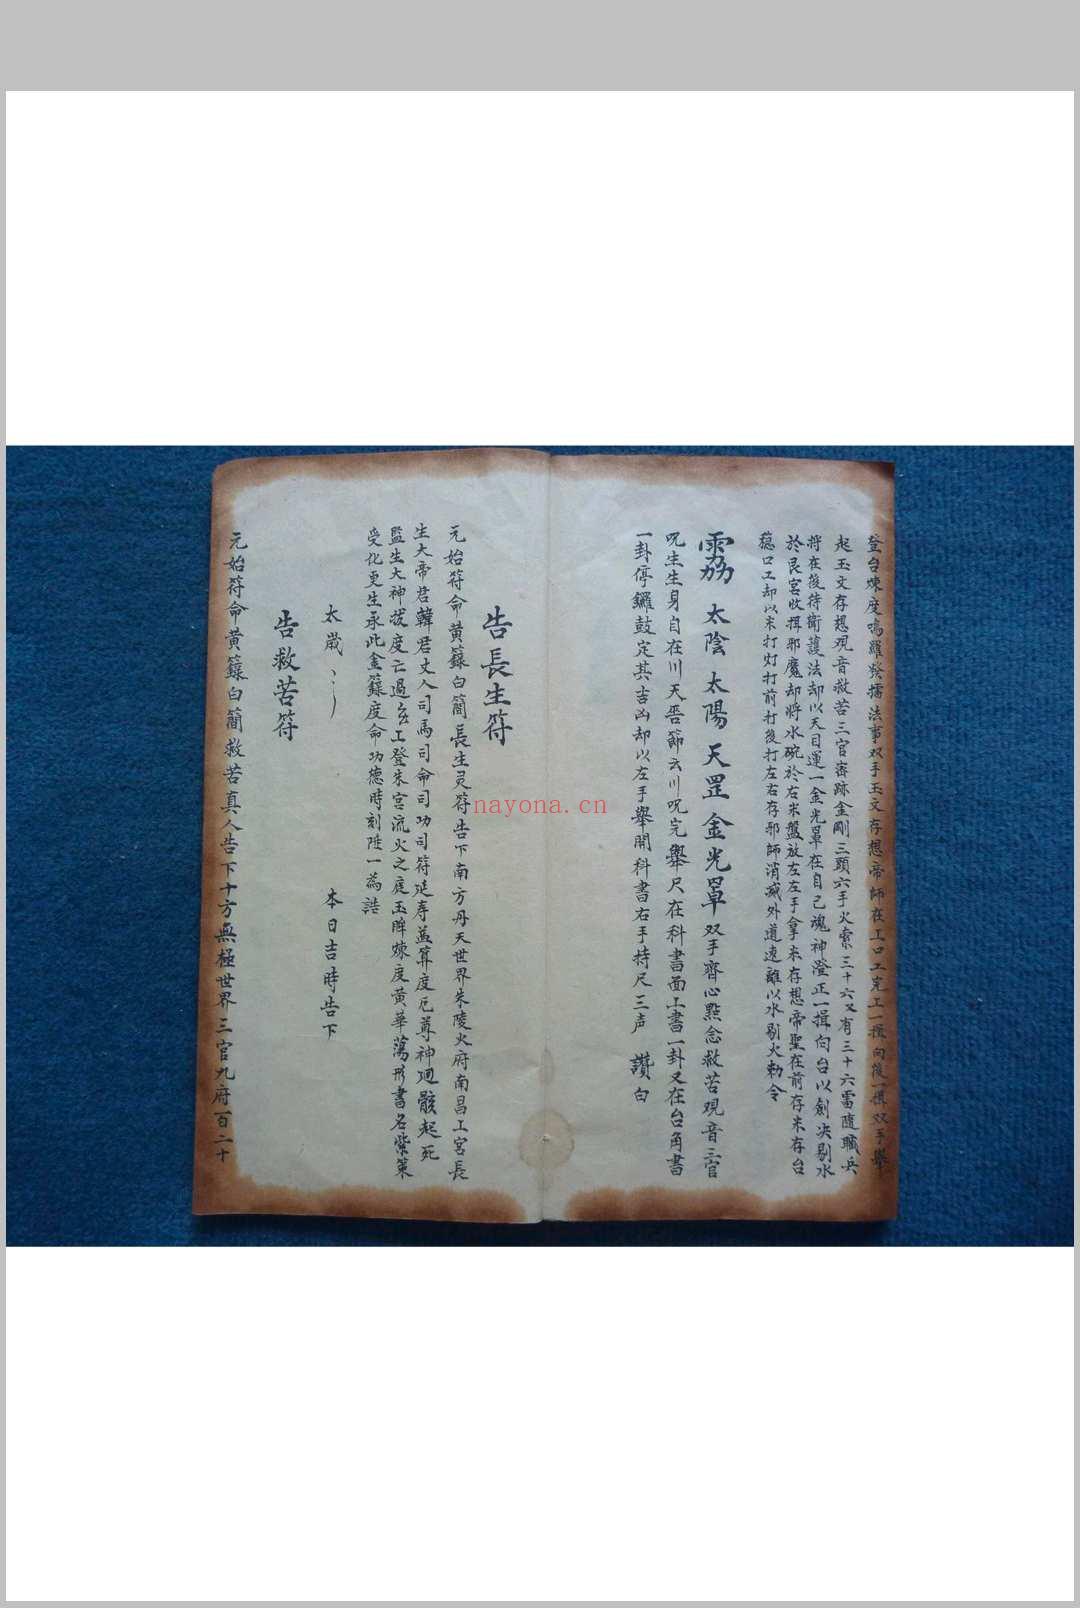 登台煉度鳴羅發擂法事双手玉文存想帝師在工口工完工一揖向後一揖双手舉
起玉文存想观音救苦三官審跡金剛三頭六手火索三十六又有三十六雷随职兵
将在後待衛護法却以天目運一金光罩在自己魂神澄正一揖向台以劍决剔水
於艮宮收揖邪魔却将水碗於右米盤放左左手拿米存想帝聖在前存米存台
穏口工却以米打灯打前打後打左右存邪師消滅外道遠離以水剔火勅令
太陰太陽天罡金光罩双手齊心點念救苦观音三官
咒生生身自在川天吞節云川咒完舉尺在科書面工書一卦又在台角書
一卦停鑼鼓定其吉凶却以左手舉開科書右手持尺三声 讚白
告長生符
元始符命黄籙白簡長生灵符告下南方丹天世界朱陵火府南昌工宫長
生大帝君韓君丈人司馬司命司功司符延寿益算度厄尊神廻骸起死
監生大神拔度亡過玄工登朱宫流火之庭玉眸煉度黄華蕩形書名紫策
受化更生承此金籙度命功德時刻陞一為誥
太歲 本日吉時告下
告救苦符
元始符命黄籙白簡救苦真人告下十方無極世界三官九府百二十
nayona.cn